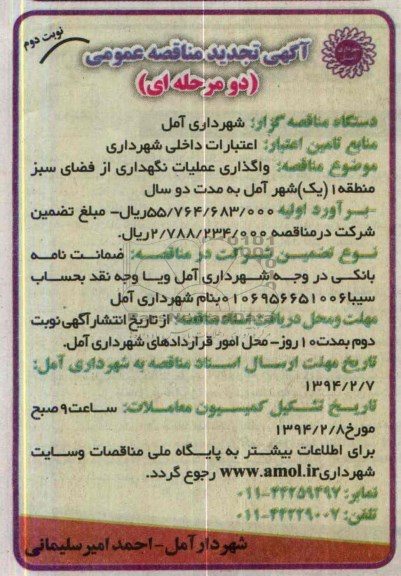 نوبت دوم
شهرداری آمل
آگهی تجدید مناقصه عمومی
(دو مرحله ای)
دستگاه مناقصه گزار: شهرداری آمل
منابع تامین اعتبار: اعتبارات داخلی شهرداری
موضوع مناقصه: واگذاری عملیات نگهداری از فضای سبز
منطقه۱(یک)شهر آمل به مدت دو سال
-برآورد اولیه ۵۵/۷۶۴/۶۸۳/۰۰۰ریال- مبلغ تضمین
شرکت درمناقصه ۲/۷۸۸/۲۳۴/۰۰۰ریال.
نوع تضمین شرکت در مناقصه: ضمانت نامه
بانکی در وجه شهرداری آمل ویا وجه نقد بحساب
سیبا۰۱۰۶۹۵۶۶۵۱۰۰۶بنام شهرداری آمل
مهلت ومحل دریافت اسناد مناقصه: از تاریخ انتشارآگهی نوبت
دوم بمدت۱۰روز- محل امور قراردادهای شهرداری آمل.
تاریخ مهلت ارسال اسناد مناقصه به شهرداری آمل:
۱۳۹۴/۲/۷
تاریخ تشکیل کمیسیون معاملات: ساعت۹صبح
مورخ۱۳۹۴/۲/۸
برای اطلاعات بیشتر به پایگاه ملی مناقصات وسایت
شهرداریwww.amol.ir رجوع گردد.
نمابر: ۴۴۲۵۹۴۹۷-۰۱۱
تلفن: ۴۴۲۲۹۰۰۷-۰۱۱
شهردارآمل-احمد امیرسلیمانی